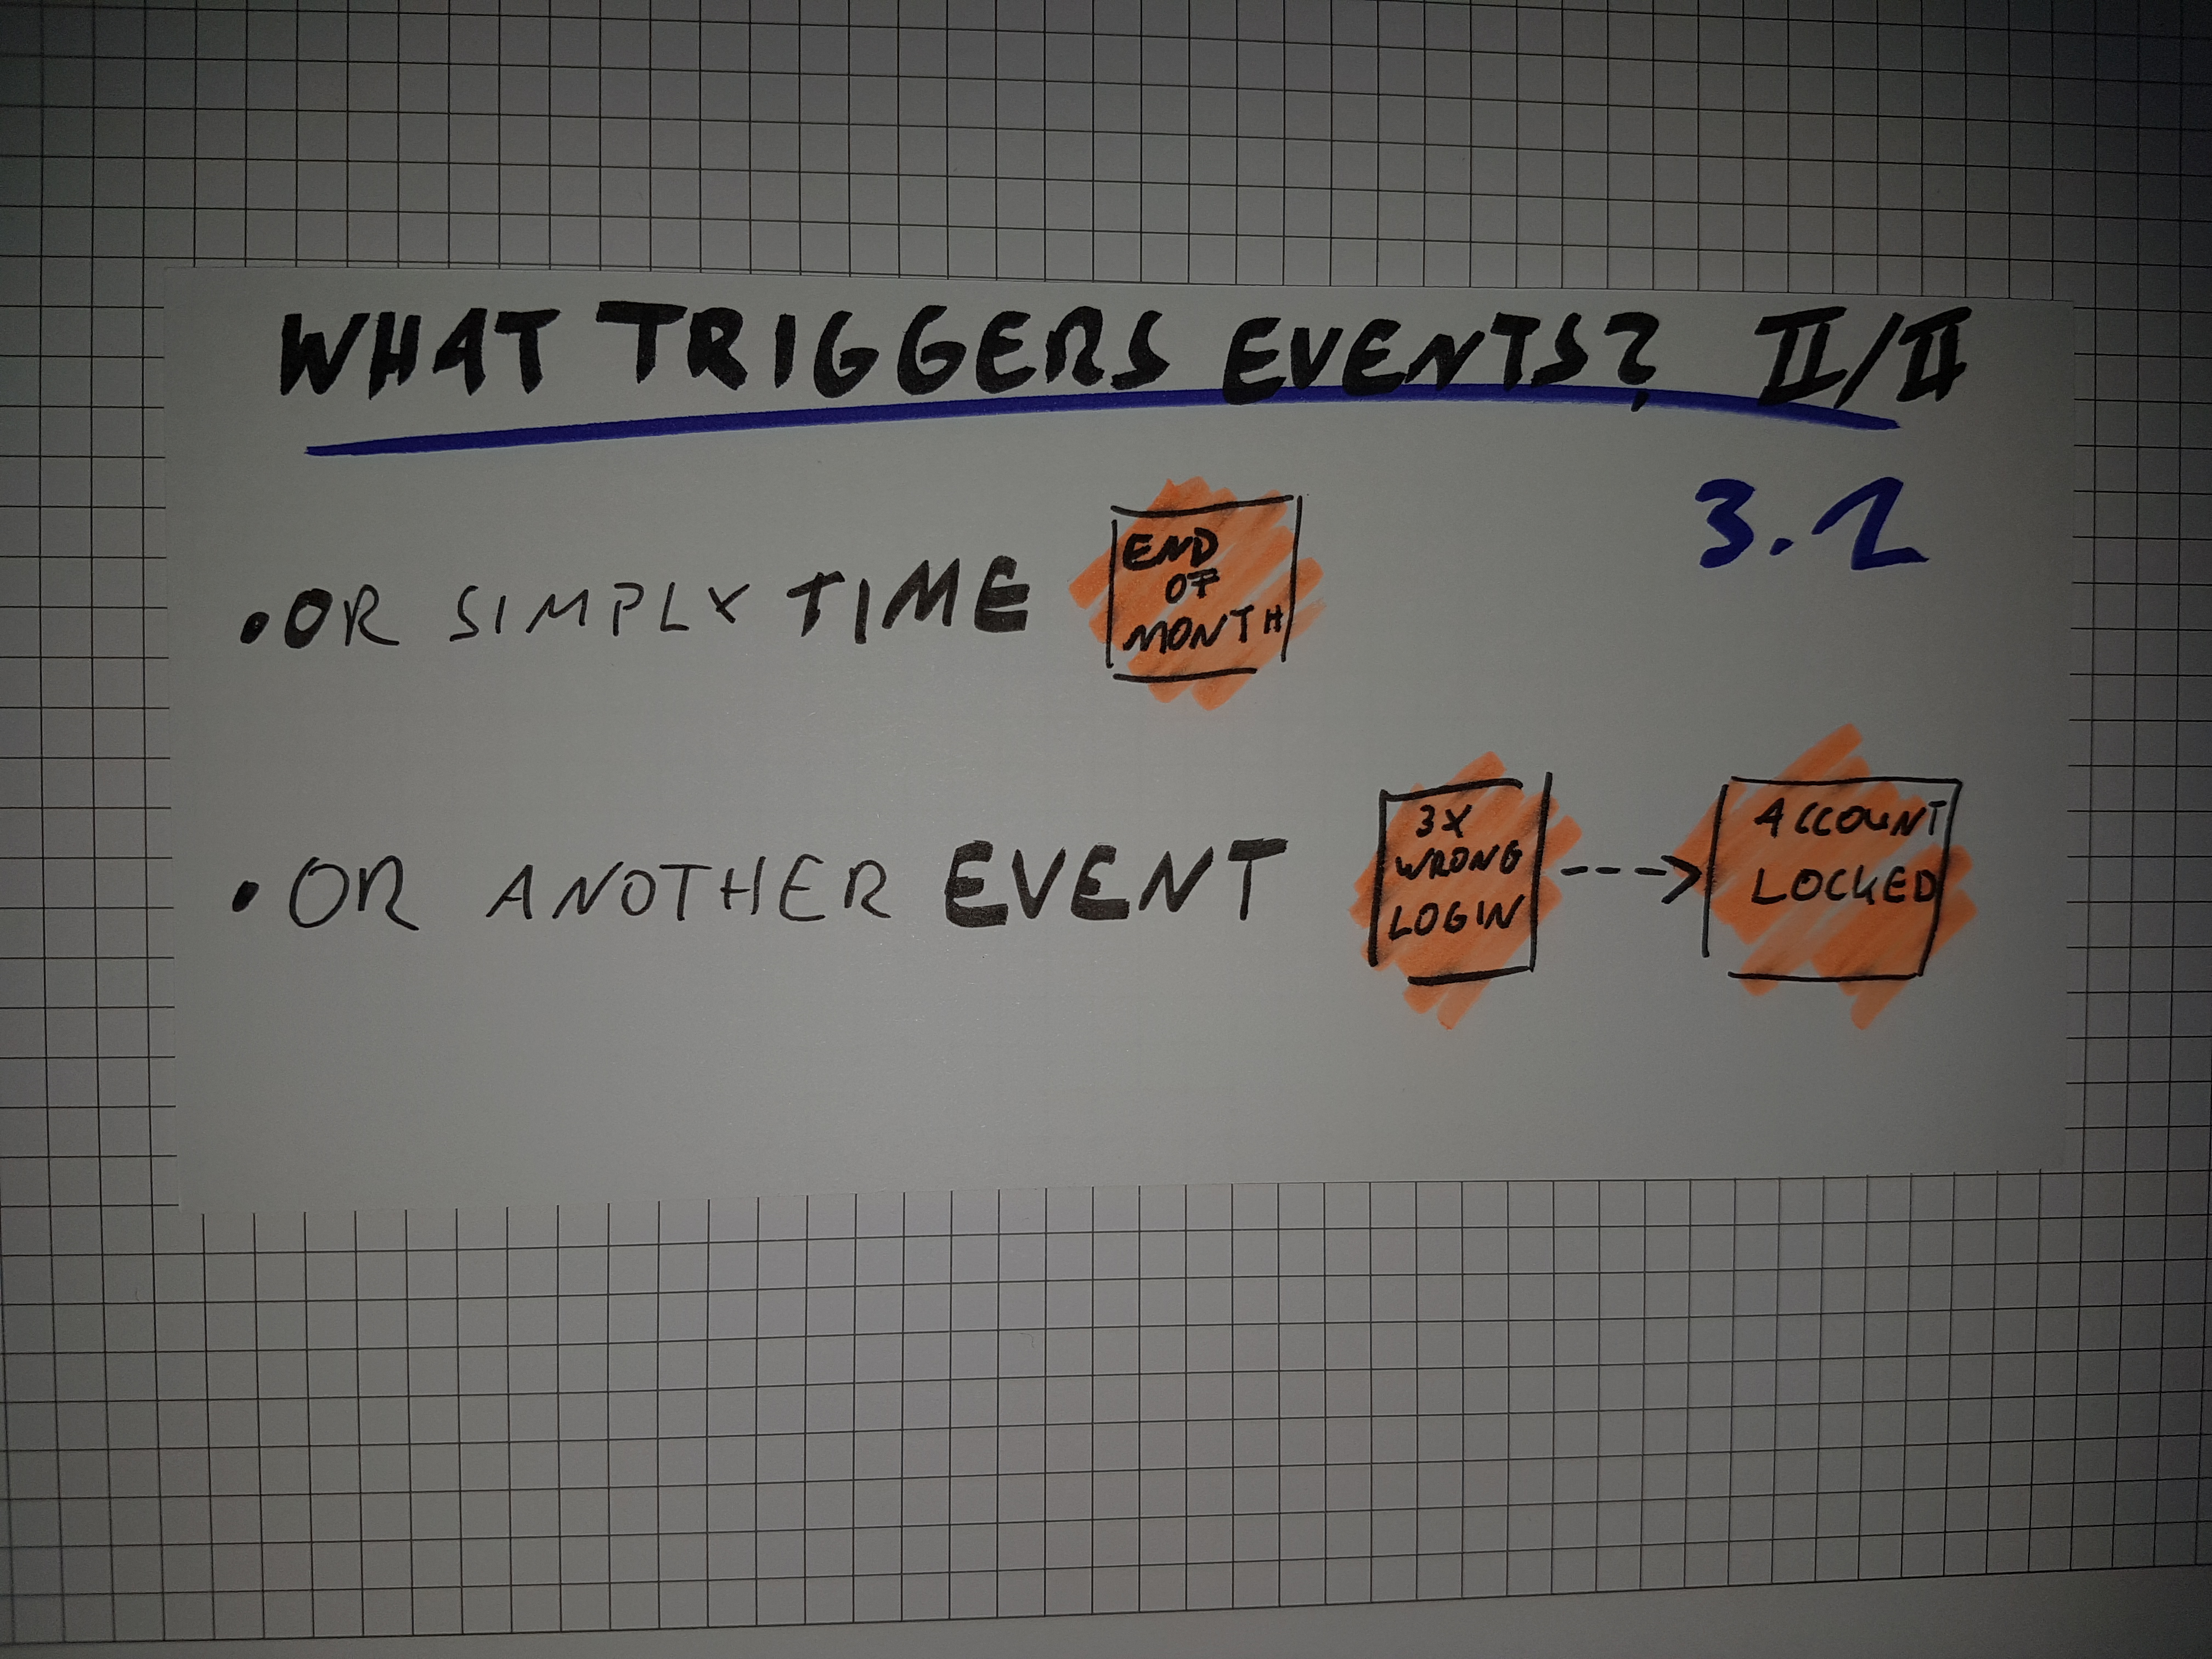 WHAT TRIGGERS EVENTS? II/II
3.2
• OR SIMPLY TIME
END
OF
MONTH
• OR ANOTHER EVENT
3X
WRONG
LOGIN
ACCOUNT
LOCKED